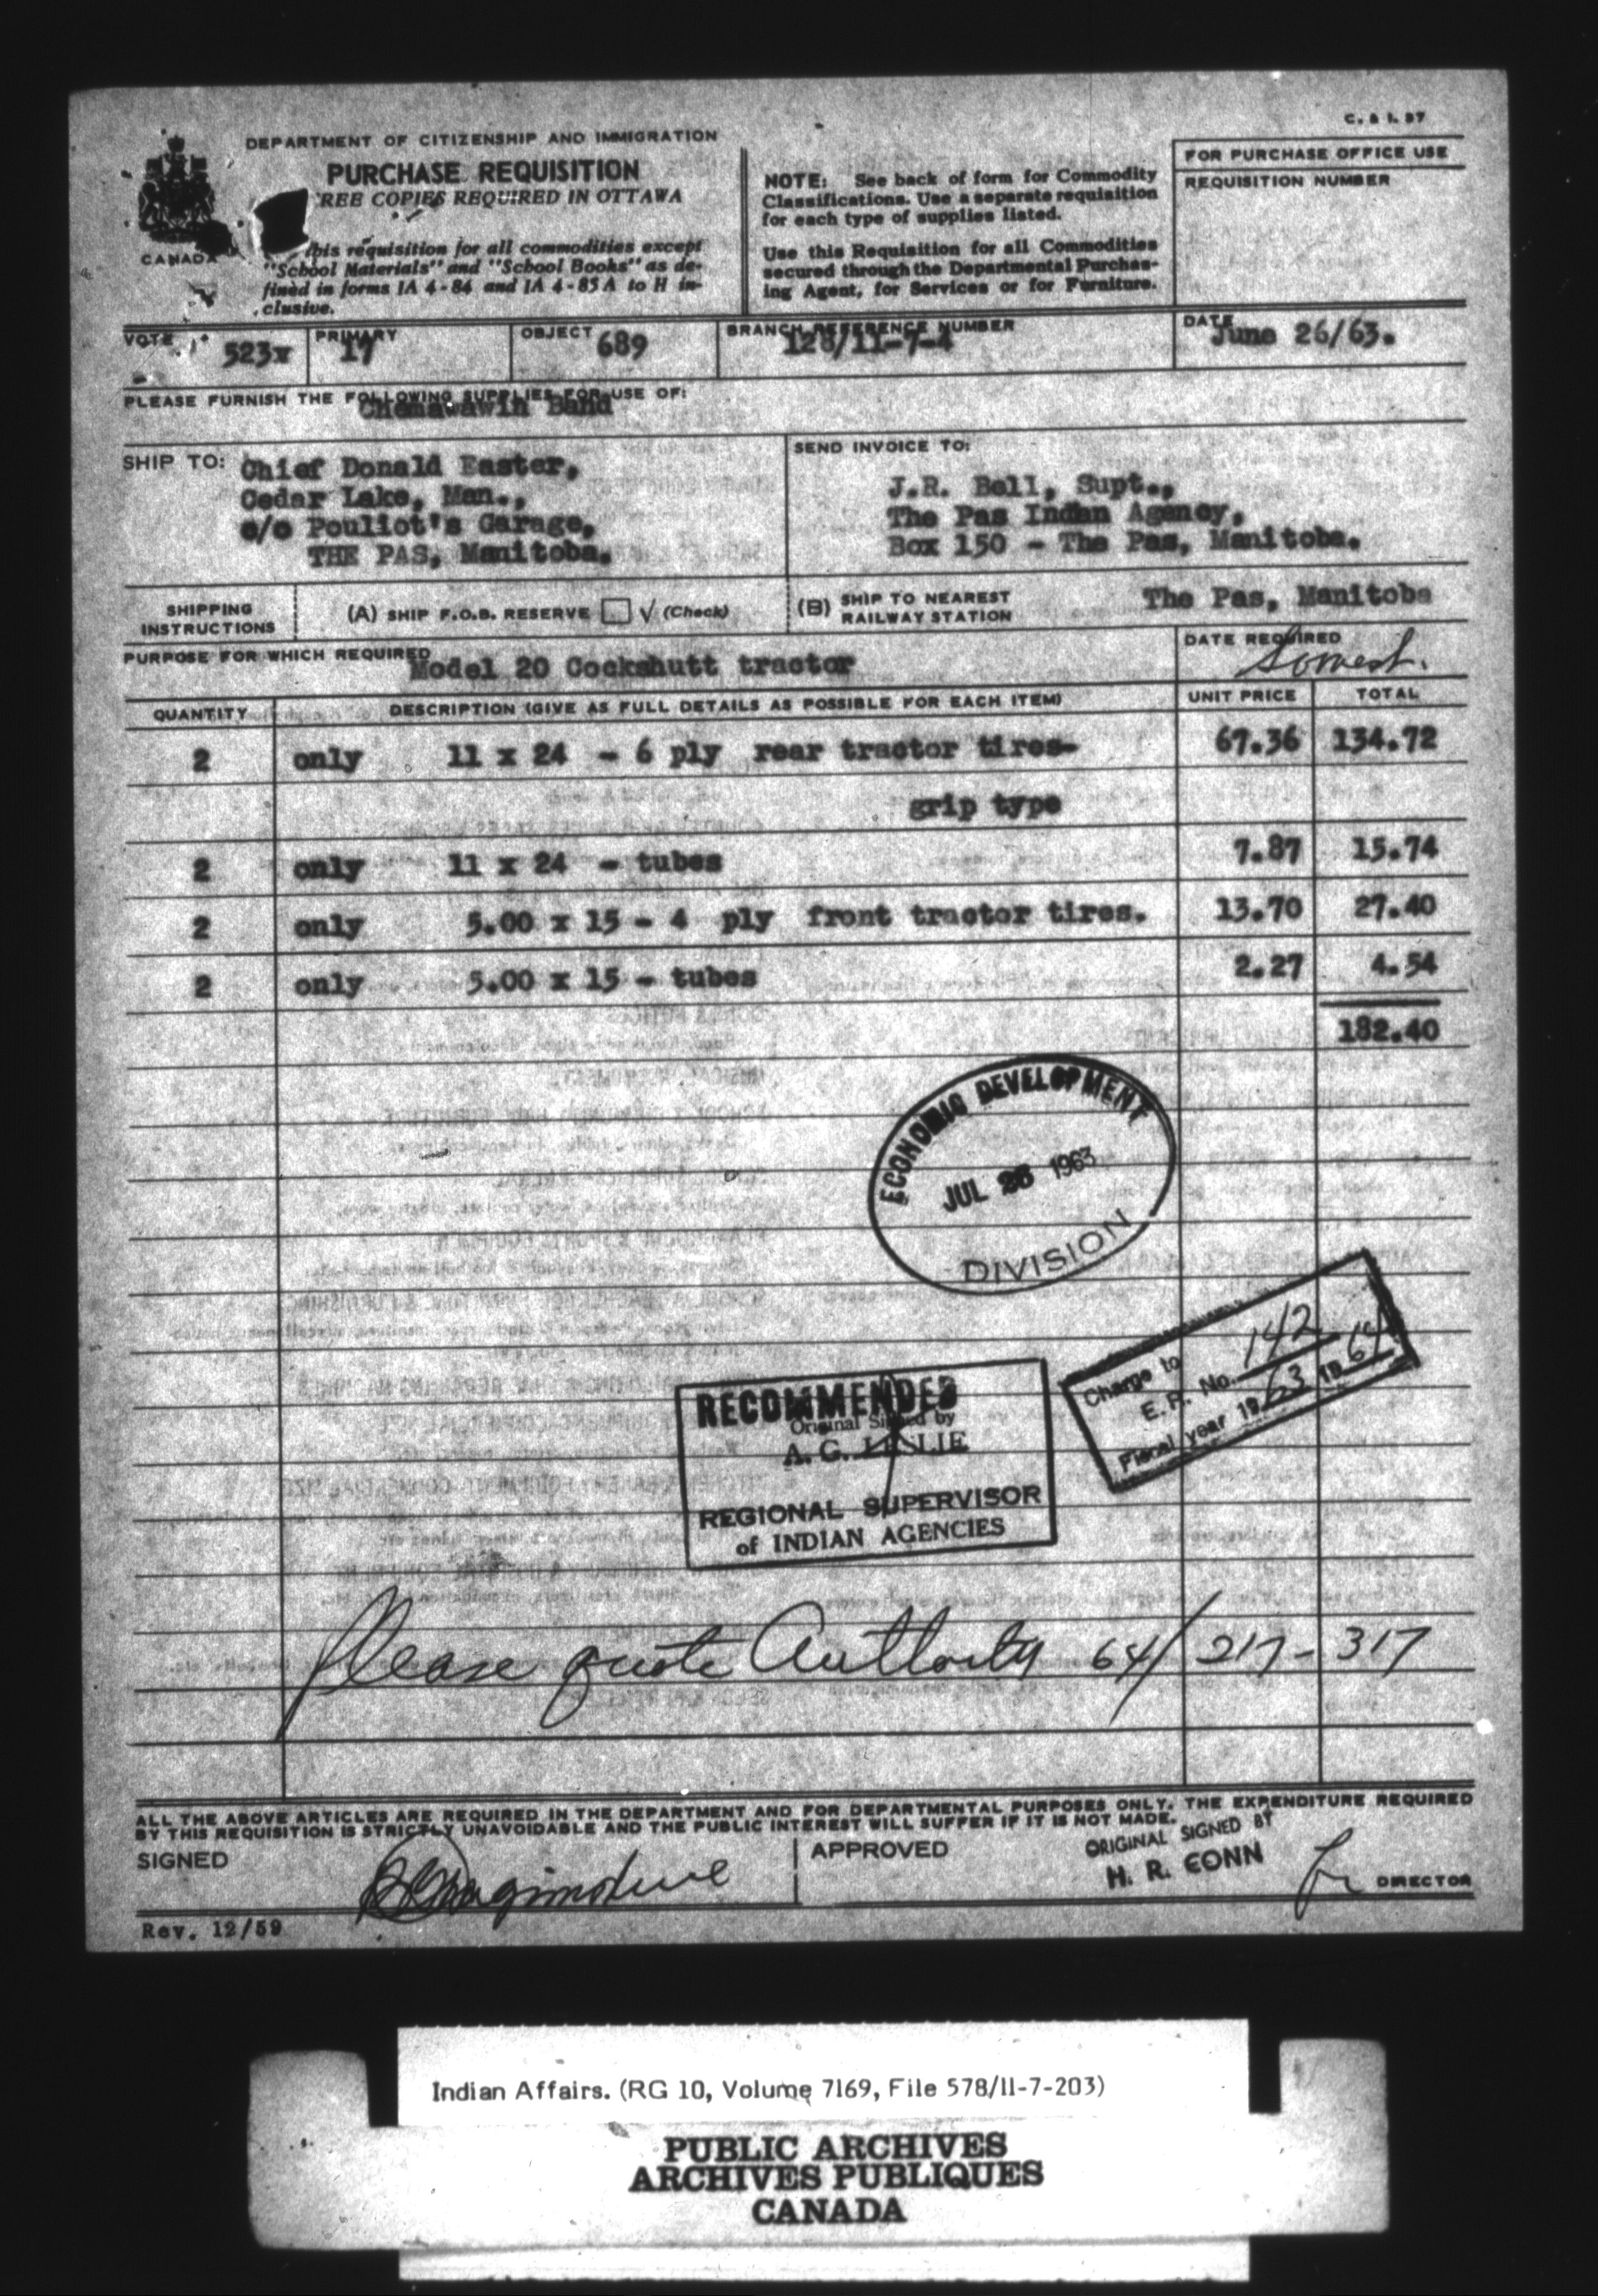 C. & I. 97
DEPARTMENT OF CITIZENSHIP AND IMMIGRATION
PURCHASE REQUISITION
REE COPIES REQUIRED IN OTTAWA
this requisition for all commodities except
"School Materials" and "School Books" as de-
fined in forms IA 4-84 and IA 4-85A to H in-
clusive.
CANADA
NOTE: See back of form for Commodity
Classifications. Use a separate requisition
for each type of supplies listed.
Use this Requisition for all Commodities
secured through the Departmental Purchas-
ing Agent, for Services or for Furniture.
FOR PURCHASE OFFICE USE
REQUISITION NUMBER
VOTE 523x PRIMARY 17 OBJECT 689 BRANCH REFERENCE NUMBER 128/11-7-4 DATE June 26/63.
PLEASE FURNISH THE FOLLOWING SUPPLIES FOR USE OF: Chemawawin Band
SHIP TO: Chief Donald Easter,
Cedar Lake, Man.,
c/o Pouliot's Garage,
THE PAS, Manitoba.
SEND INVOICE TO:
J.R. Bell, Supt.,
The Pas Indian Agency,
Box 150 - The Pas, Manitoba.
SHIPPING INSTRUCTIONS (A) SHIP F.O.B. RESERVE √ (Check) (B) SHIP TO NEAREST RAILWAY STATION The Pas, Manitoba
PURPOSE FOR WHICH REQUIRED Model 20 Cockshutt tractor DATE REQUIRED
QUANTITY DESCRIPTION (GIVE AS FULL DETAILS AS POSSIBLE FOR EACH ITEM) UNIT PRICE TOTAL
2 only 11 x 24 - 6 ply rear tractor tires- 67.36 134.72
grip type
2 only 11 x 24 - tubes 7.87 15.74
2 only 5.00 x 15 - 4 ply front tractor tires. 13.70 27.40
2 only 5.00 x 15 - tubes 2.27 4.54
182.40
ECONOMIC DEVELOPMENT
JUL 26 1963
DIVISION
Charge to
E. R. No. 142
Fiscal year 1963 to 64
RECOMMENDED
Original Signed by
A. G. LESLIE
REGIONAL SUPERVISOR
of INDIAN AGENCIES
Please quote Authority 64/217-317
ALL THE ABOVE ARTICLES ARE REQUIRED IN THE DEPARTMENT AND FOR DEPARTMENTAL PURPOSES ONLY. THE EXPENDITURE REQUIRED
BY THIS REQUISITION IS STRICTLY UNAVOIDABLE AND THE PUBLIC INTEREST WILL SUFFER IF IT IS NOT MADE.
SIGNED
APPROVED
ORIGINAL SIGNED BY
H. R. CONN
DIRECTOR
Rev. 12/59
Indian Affairs. (RG 10, Volume 7169, File 578/11-7-203)
PUBLIC ARCHIVES
ARCHIVES PUBLIQUES
CANADA